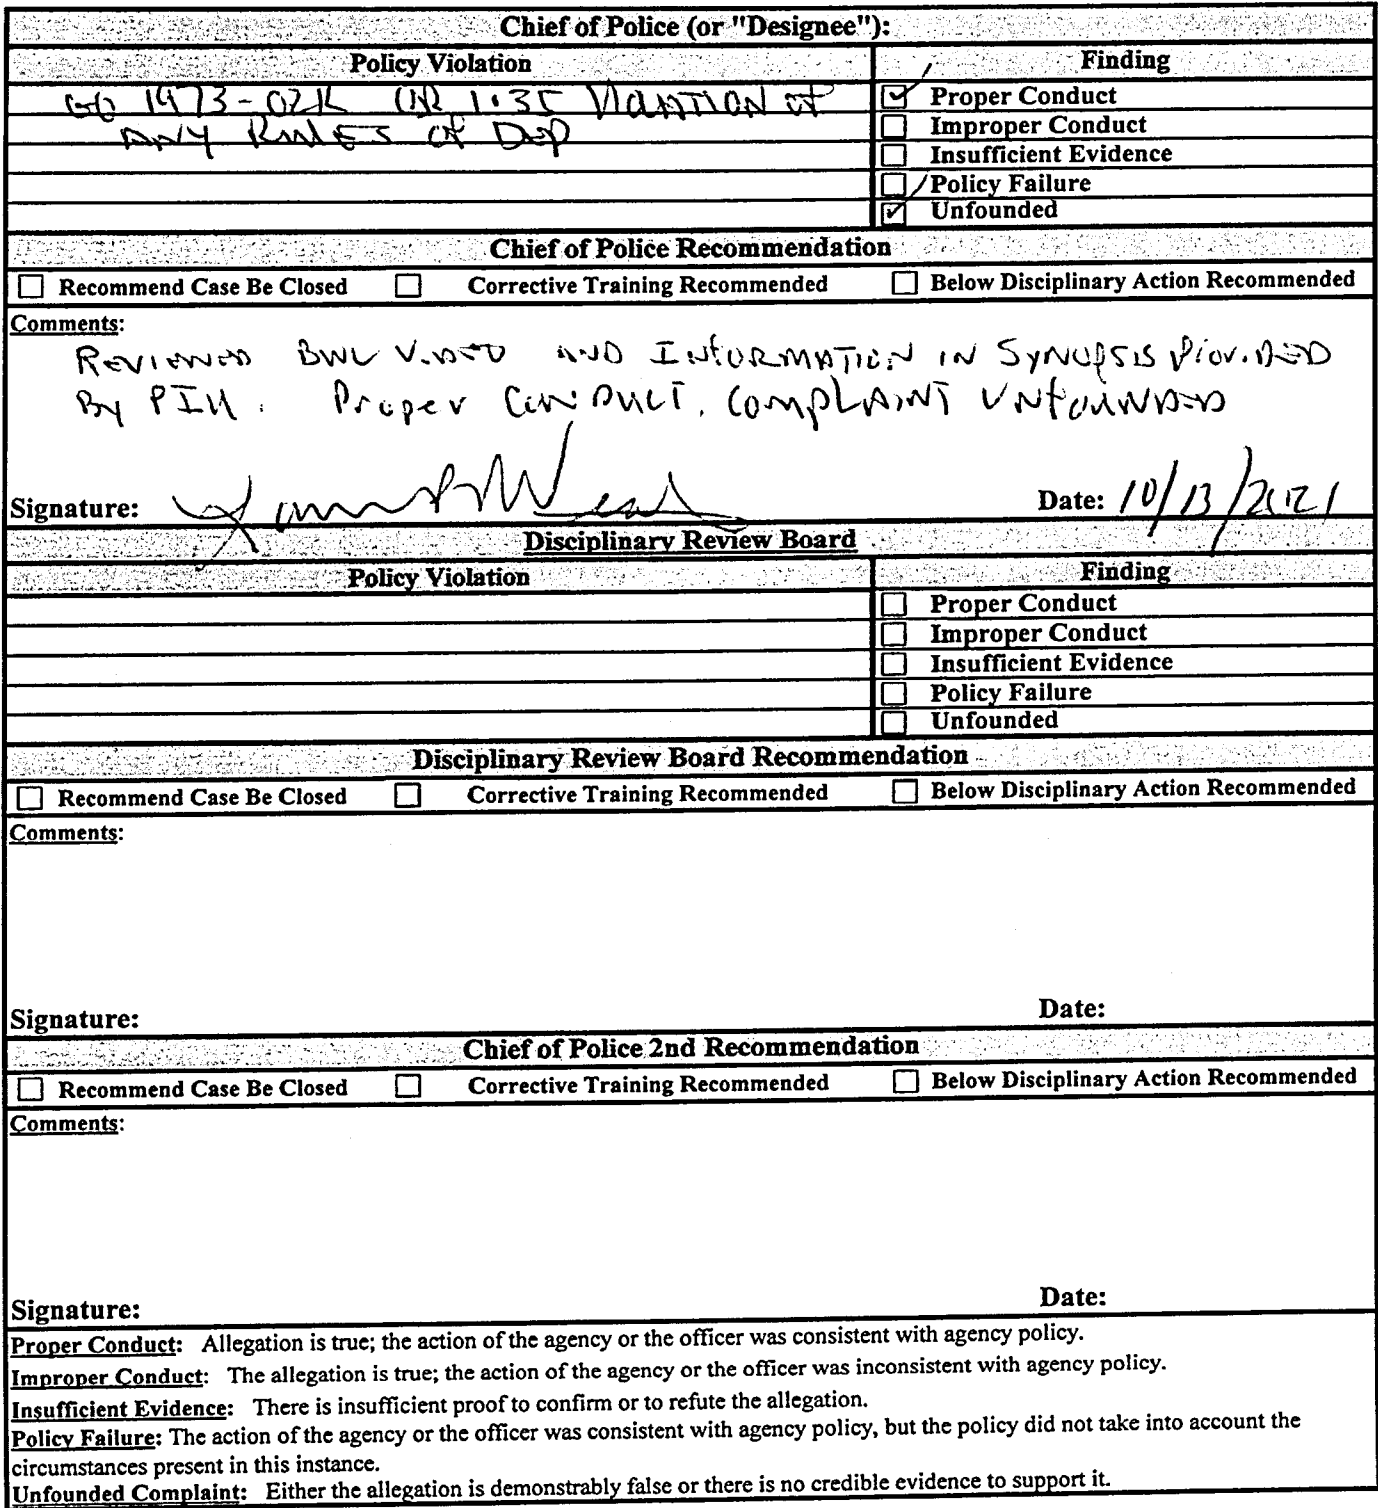 Chief of Police (or "Designee"):
Policy Violation Finding
GO 1973-02K OR 1.35 Violation of Proper Conduct
ANY RULES OF DEP Improper Conduct
Insufficient Evidence
Policy Failure
Unfounded
Chief of Police Recommendation
Recommend Case Be Closed Corrective Training Recommended Below Disciplinary Action Recommended
Comments:
REVIEWED BWC VIDEO AND INFORMATION IN SYNOPSIS PROVIDED
By PIU. Proper CONDUCT, COMPLAINT UNFOUNDED
Signature: Date: 10/13/2021
Disciplinary Review Board
Policy Violation Finding
Proper Conduct
Improper Conduct
Insufficient Evidence
Policy Failure
Unfounded
Disciplinary Review Board Recommendation
Recommend Case Be Closed Corrective Training Recommended Below Disciplinary Action Recommended
Comments:
Signature: Date:
Chief of Police 2nd Recommendation
Recommend Case Be Closed Corrective Training Recommended Below Disciplinary Action Recommended
Comments:
Signature: Date:
Proper Conduct: Allegation is true; the action of the agency or the officer was consistent with agency policy.
Improper Conduct: The allegation is true; the action of the agency or the officer was inconsistent with agency policy.
Insufficient Evidence: There is insufficient proof to confirm or to refute the allegation.
Policy Failure: The action of the agency or the officer was consistent with agency policy, but the policy did not take into account the
circumstances present in this instance.
Unfounded Complaint: Either the allegation is demonstrably false or there is no credible evidence to support it.